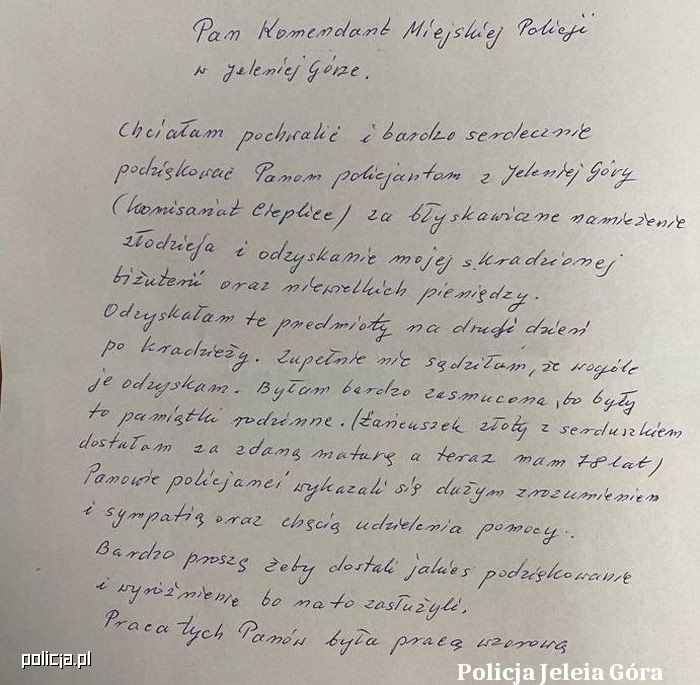 Pan Komendant Miejskiej Policji
w Jeleniej Górze.
Chciałam pochwalić i bardzo serdecznie
podziękować Panom policjantom z Jeleniej Góry
(Komisariat Cieplice) za błyskawiczne namierzenie
złodzieja i odzyskanie mojej skradzionej
biżuterii oraz niewielkich pieniędzy.
Odzyskałam te przedmioty na drugi dzień
po kradzieży. Zupełnie nie sądziłam, że wogóle
je odzyskam. Byłam bardzo zasmucona, bo były
to pamiątki rodzinne. (Łańcuszek złoty z serduszkiem
dostałam za zdaną maturę a teraz mam 78 lat)
Panowie policjanci wykazali się dużym zrozumieniem
i sympatią oraz chęcią udzielenia pomocy.
Bardzo proszę żeby dostali jakieś podziękowanie
i wyróżnienie bo na to zasłużyli.
Praca tych Panów była pracą wzorową
policja.pl
Policja Jeleia Góra